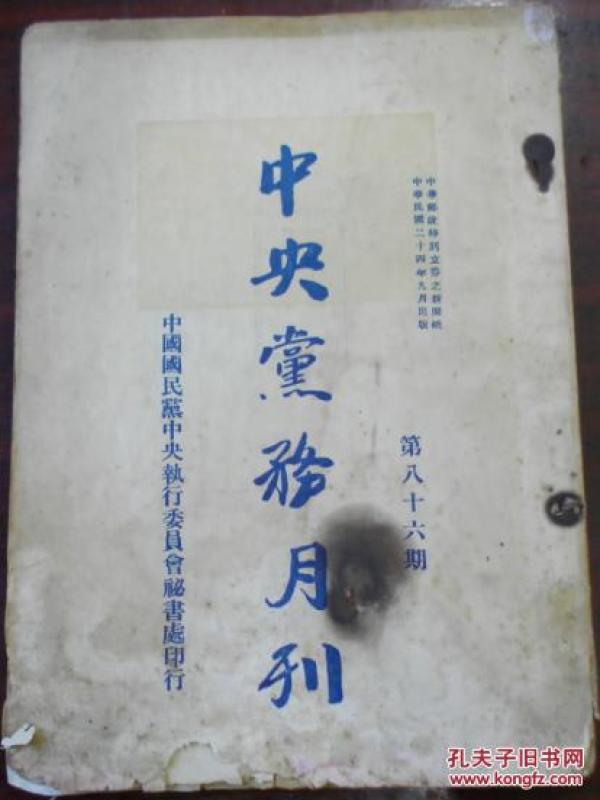 中華郵政特別立券之新聞紙
中華民國二十四年九月出版
第八十六期
中央黨務月刊
中國國民黨中央執行委員會祕書處印行
孔夫子旧书网
www.kongfz.com